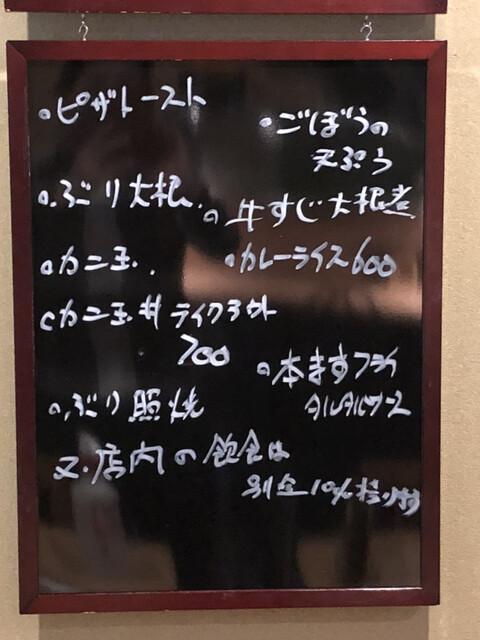 ピザトースト
ごぼうの
天ぷら
ぶり大根
牛すじ大根煮
カニ玉
カレーライス600
カニ玉丼テイクアウト
700
本ますフライ
タルタルソース
ぶり照焼
又、店内の飲食は
別途10%